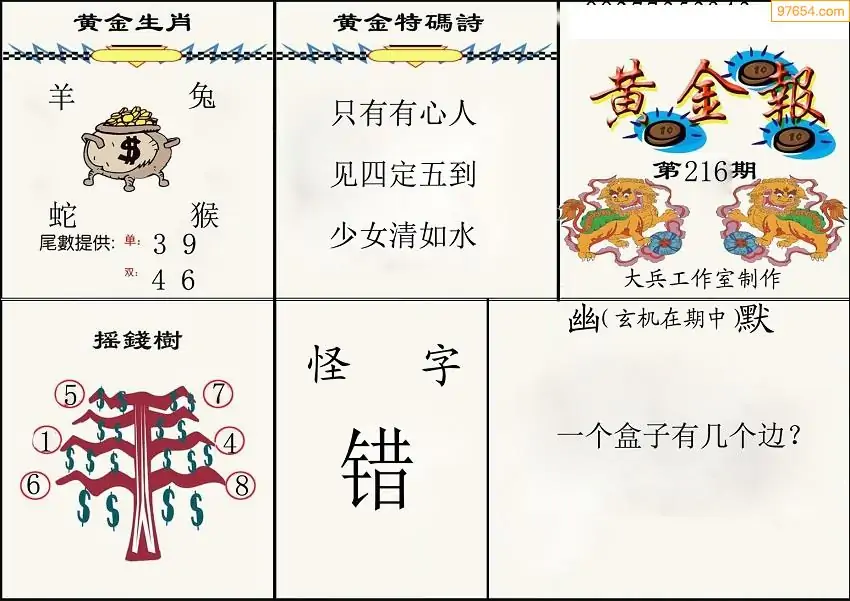 97654.com
黄金生肖
羊 兔
$
蛇 猴
尾數提供: 单: 3 9
双: 4 6
黄金特碼詩
只有有心人
见四定五到
少女清如水
黄金報
10
10
10
第216期
大兵工作室制作
摇錢樹
5 7
1 4
6 8
$ $ $ $
$ $ $ $
$ $ $ $
$ $ $ $
怪 字
错
幽(玄机在期中)默
一个盒子有几个边?